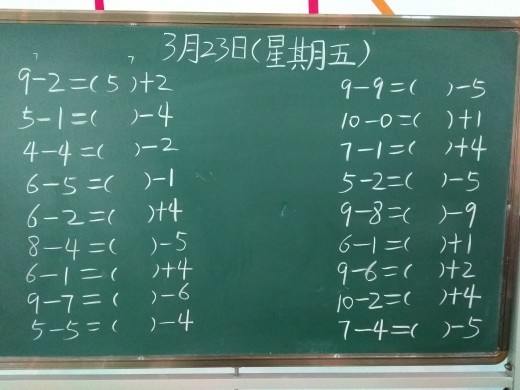 3月23日(星期五)
9-2=(5)+2
5-1=( )-4
4-4=( )-2
6-5=( )-1
6-2=( )+4
8-4=( )-5
6-1=( )+4
9-7=( )-6
5-5=( )-4
9-9=( )-5
10-0=( )+1
7-1=( )+4
5-2=( )-5
9-8=( )-9
6-1=( )+1
9-6=( )+2
10-2=( )+4
7-4=( )-5